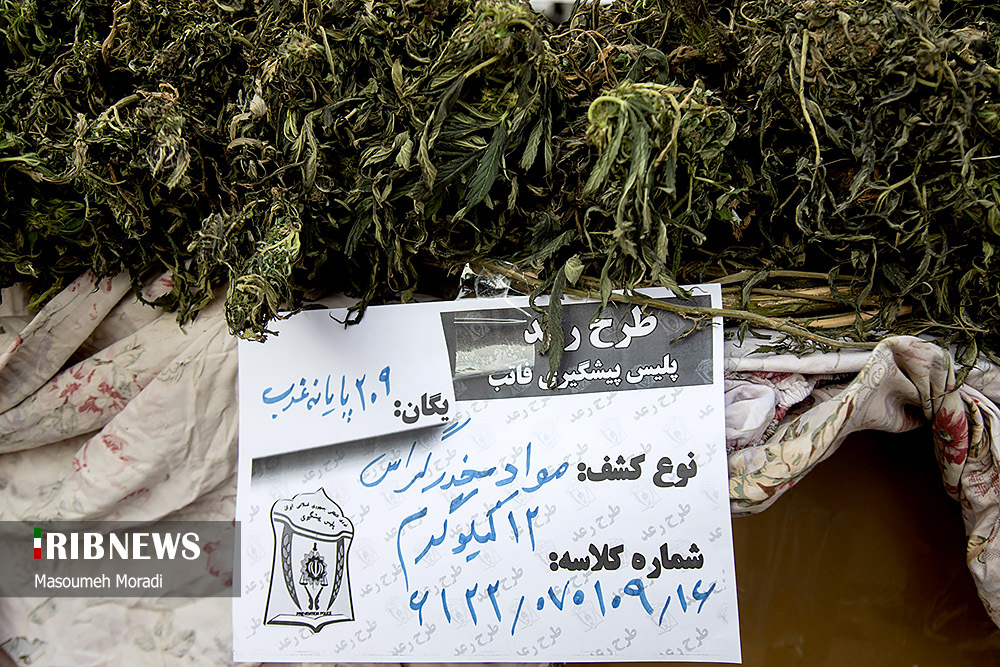 طرح رعد
پلیس پیشگیری فاتب
یگان: ۲۰۹ پایانه غرب
نوع کشف: مواد مخدر گراس
۱۲ کیلوگرم
شماره کلاسه:
۶۱۲۲/۰۷۰۱۰۹/۱۶
PREVENTION POLICE
IRIBNEWS
Masoumeh Moradi